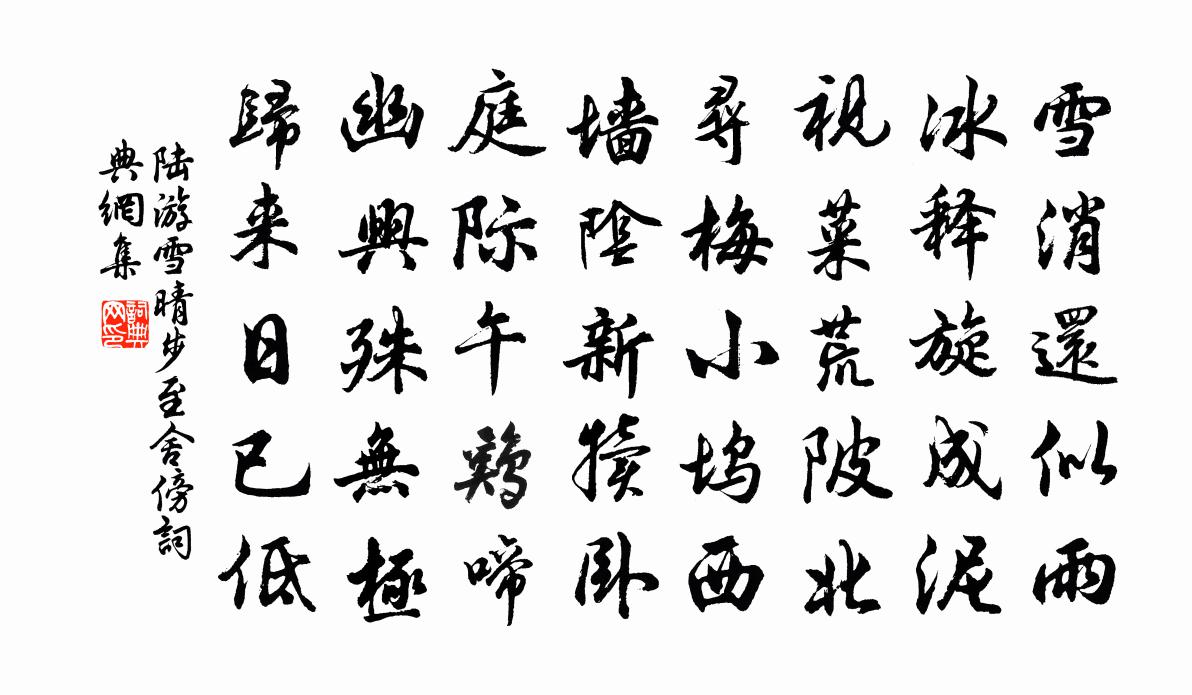 雪消還似雨
冰释旋成泥
視菜荒陂北
尋梅小坞西
墙陰新犊卧
庭际午鷄啼
幽興殊無極
歸来日已低
陆游雪晴步至舍傍詞
典網集
詞典
网印